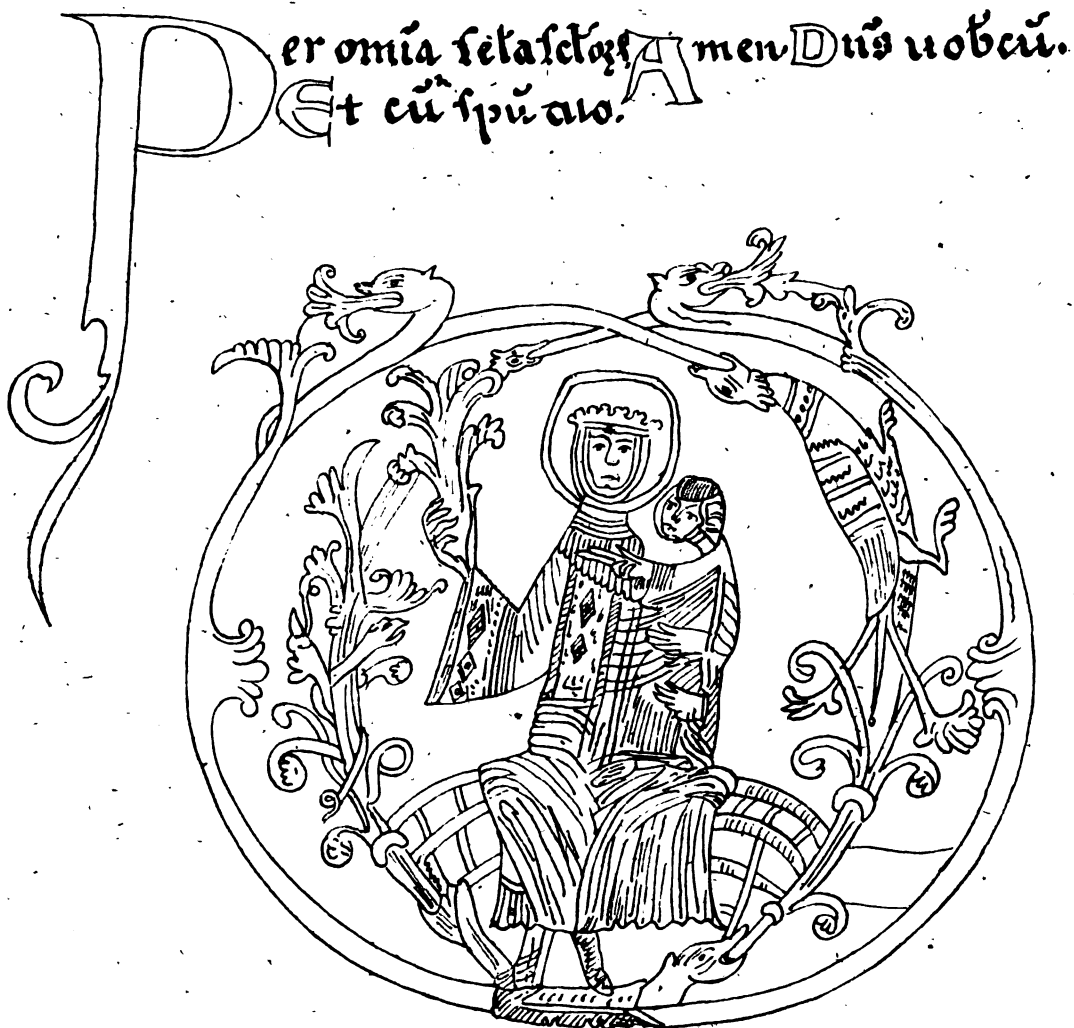 Per om̅ia sc̅la sc̅loꝝ Amen Dn̅s uobcu̅.
Et cu̅ spu̅ tuo.